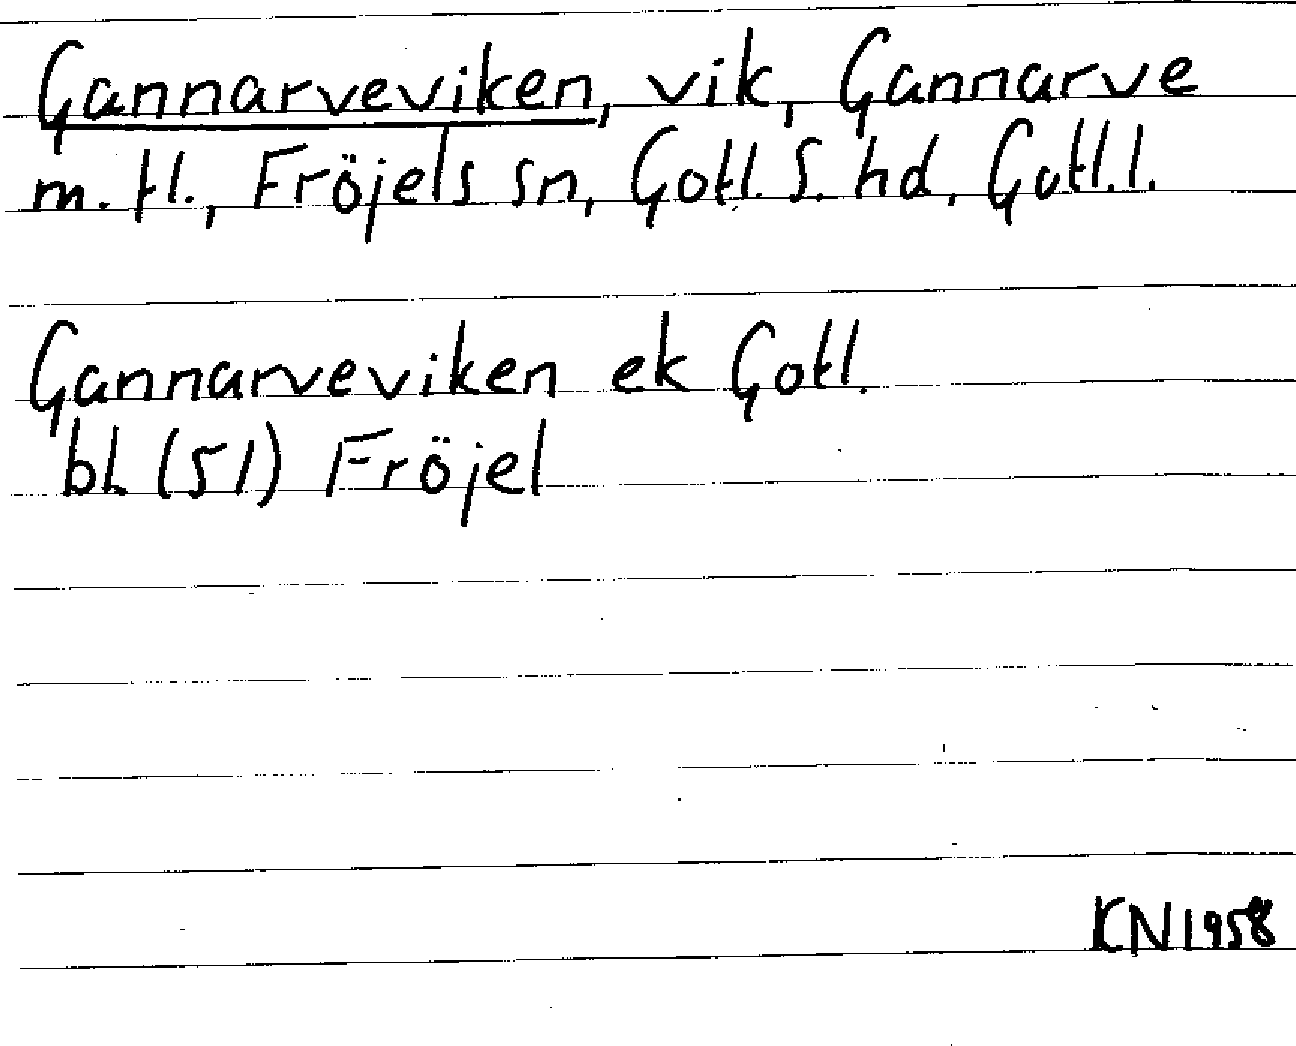 Gannarveviken, vik, Gannarve
m. fl., Fröjels sn, Gotl. S. hd, Gotl. l.
Gannarveviken ek Gotl.
bl (51) Fröjel
KN 1958